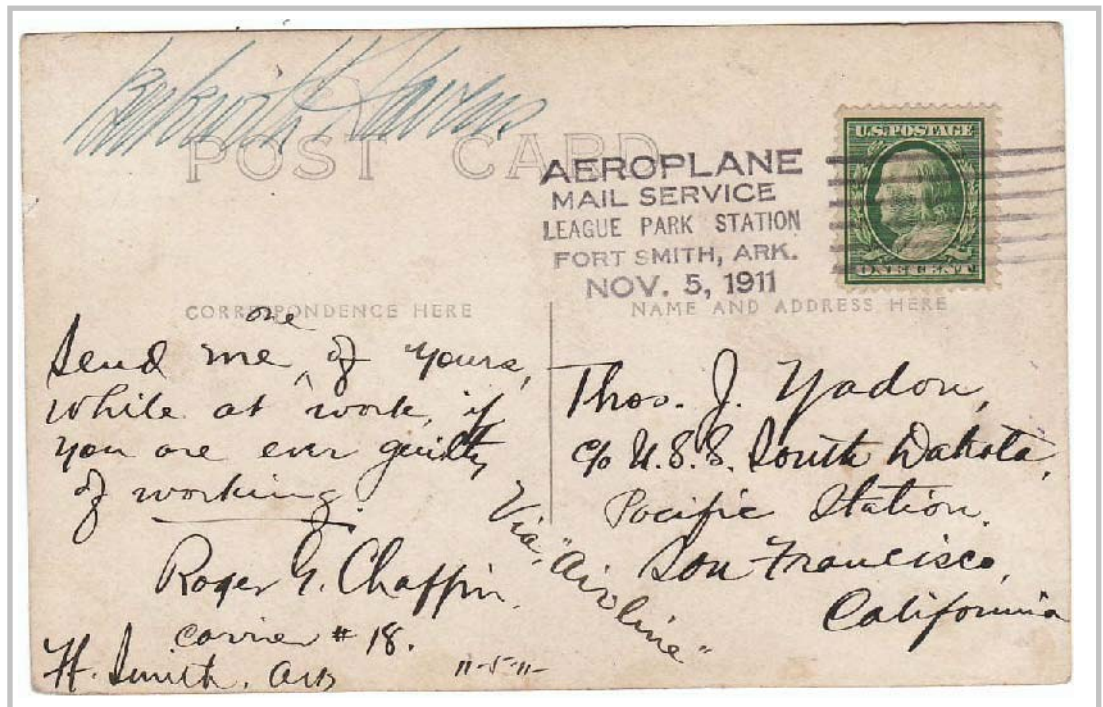 Beckwith Havens
POST CARD
AEROPLANE
MAIL SERVICE
LEAGUE PARK STATION
FORT SMITH, ARK.
NOV. 5, 1911
U.S. POSTAGE
ONE CENT
CORRESPONDENCE HERE
one
Send me ^ of yours,
while at work, if
you are ever guilty
of working.
Roger G. Chaffin.
Carrier # 18.
Ft. Smith. Ark
11-5-11-
Via, "Airline"
NAME AND ADDRESS HERE
Thos. J. Yadon,
c/o U.S.S. South Dakota,
Pacific Station.
San Francisco,
California